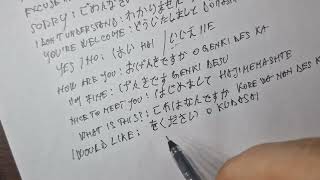 SORRY: ごめんなさい
I DONT UNDERSTAND: わかりません
YOU'RE WELCOME: どういたしまして
YES / NO: はい HAI / いいえ IIE
HOW ARE YOU: おげんきですか O GENKI DES KA
I'M FINE: げんきです GENKI DESU
NICE TO MEET YOU: はじめまして HAJIMEMASHITE
WHAT IS THIS?: これはなんですか KORE WA NAN DES KA
I WOULD LIKE: をください O KUDASAI